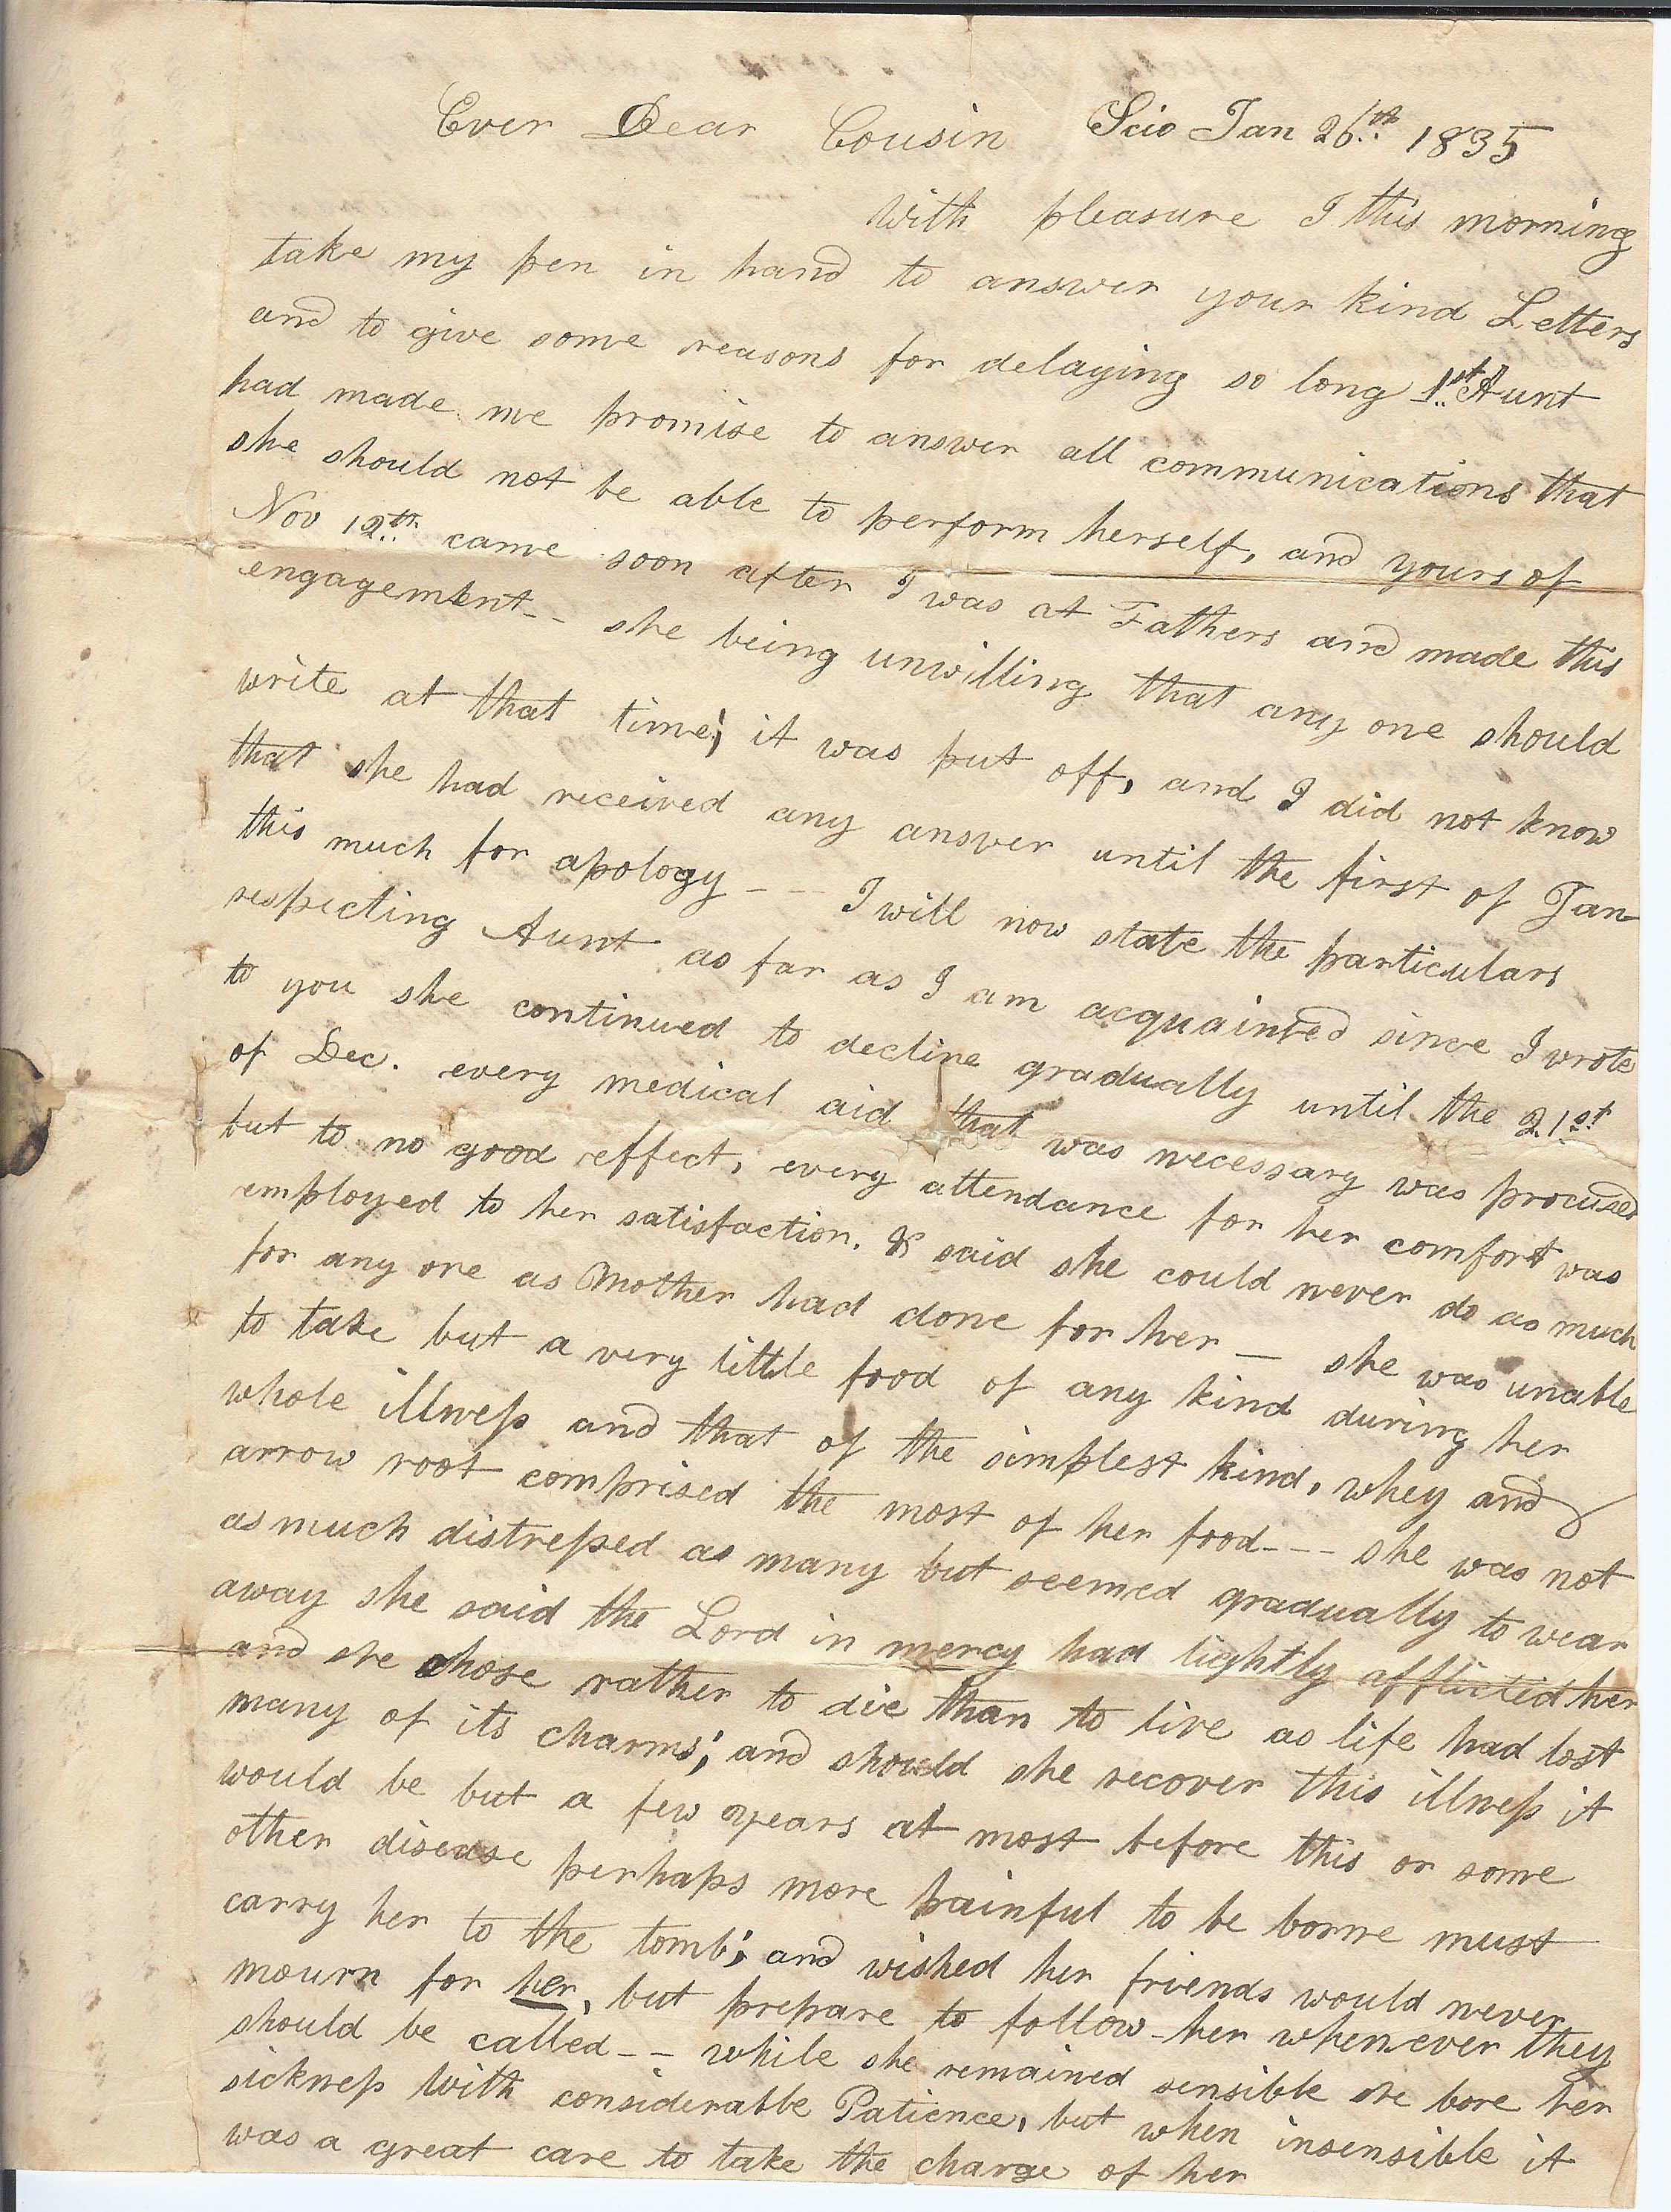 Ever Dear Cousin Scio Jan 26th 1835
With pleasure I this morning
take my pen in hand to answer your kind Letters
and to give some reasons for delaying so long 1st Aunt
had made me promise to answer all communications that
she should not be able to perform herself, and yours of
Nov 12th came soon after I was at Fathers and made this
engagement -- she being unwilling that any one should
write at that time; it was put off, and I did not know
that she had received any answer until the first of Jan
this much for apology -- I will now state the particulars
respecting Aunt as far as I am acquainted since I wrote
to you she continued to decline gradually until the 21st
of Dec. every medical aid that was necessary was procured
but to no good effect, every attendance for her comfort was
employed to her satisfaction. & said she could never do as much
for any one as Mother had done for her — she was unable
to take but a very little food of any kind during her
whole illneſs and that of the simplest kind, whey and
arrow root comprised the most of her food --- she was not
as much distreſsed as many but seemed gradually to wear
away she said the Lord in mercy had lightly afflicted her
and she chose rather to die than to live as life had lost
many of its charms; and should she recover this illneſs it
would be but a few years at most before this or some
other disease perhaps more painful to be borne must
carry her to the tomb; and wished her friends would never
mourn for her, but prepare to follow her whenever they
should be called -- while she remained sensible she bore her
sickneſs with considerable Patience, but when insensible it
was a great care to take the charge of her